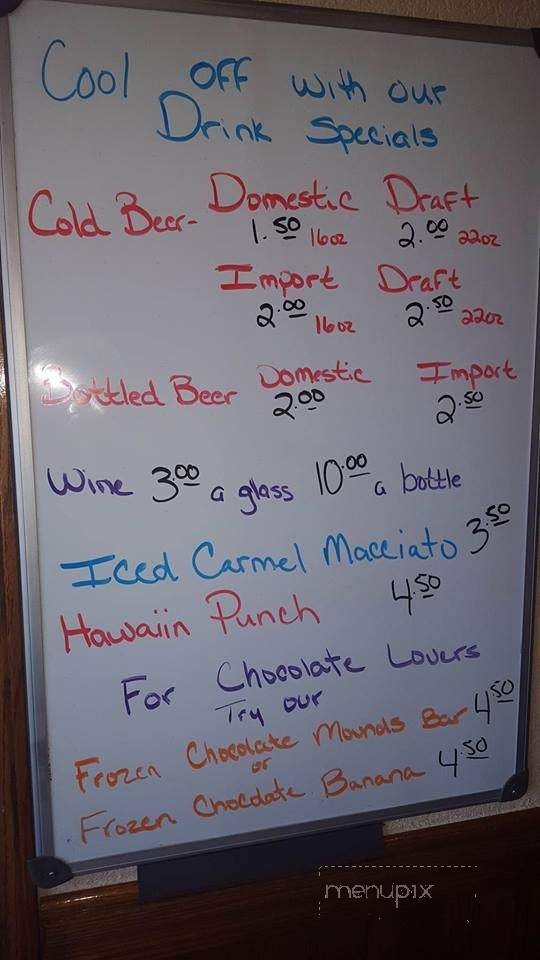 Cool OFF with our
Drink Specials
Cold Beer- Domestic Draft
1.50 16oz 2.00 22oz
Import Draft
2.00 16oz 2.50 22oz
Bottled Beer Domestic Import
2.00 2.50
Wine 3.00 a glass 10.00 a bottle
Iced Carmel Macciato 3.50
Hawaiin Punch 4.50
For Chocolate Lovers
Try our
Frozen Chocolate Mounds Bar 4.50
or
Frozen Chocolate Banana 4.50
menupix